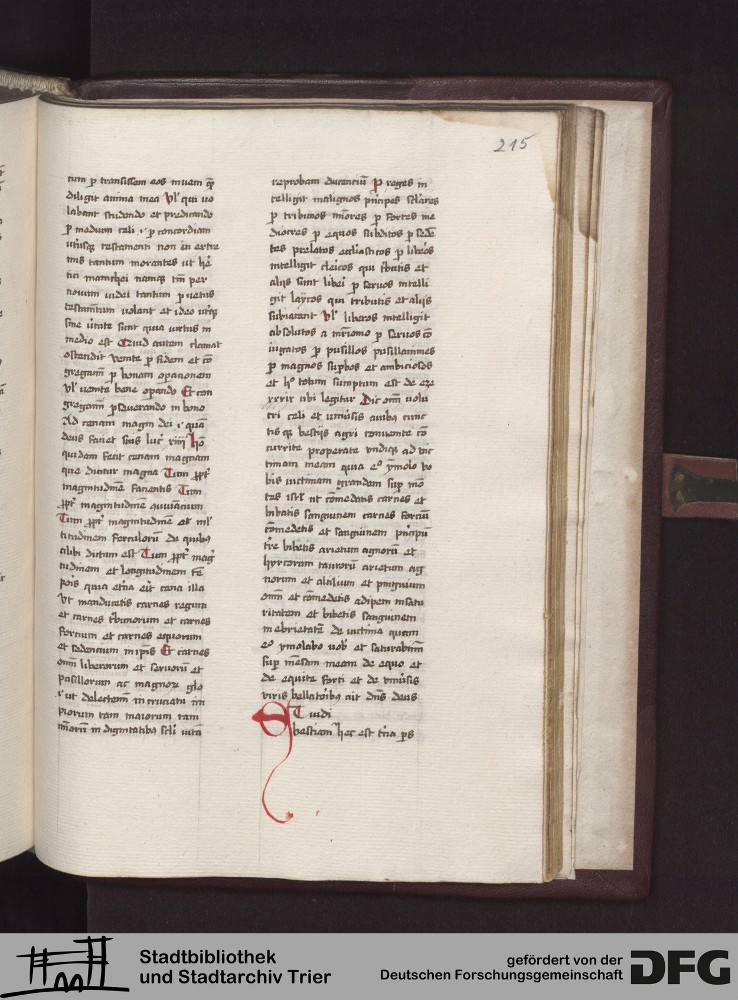 215
tum p transissem eos inueni qͣ
diligit anima mea Vl' qui uo
labant studendo et predicando
p medium celi .i. p concordiam
utriusqꝫ testamenti non in extre
mis tantum morantes ut he
tici manichei namqꝫ tm̄ per
nouum iudei tantum p uetus
testam̄tum uolant et ideo utriqꝫ
sine uirtute sunt quia uirtus in
medio est Quid autem clamat
ostendit Venite p fidem et con
gregamī p bonam operationem
Vl' uenite bene operando Et con
gregamī pseuerando in bono
Ad cenam magnā dei .i. quā
deus faciet suis luc xiiij Hō
quidam fecit cenam magnam
que dicitur magna Tum ppt'
magnitudinē facientis Tum
ppt' magnitudinē conuiuantium
Tum ppt' magnitudinē et ml'
titudinem ferculorū de quibꝫ
alibi dictum est Tum ppt' mag
nitudinem et longitudinem tē
pois quia etna erit cena illa
Vt manducetis carnes regum
et carnes tbunorum et carnes
fortium et carnes equorum
et sedentium in ipīs Et carnes
omīn liberorum et seruorū et
pusillorum ac magnoꝝ glo
.i. ut delectemī in cruciatu im
piorum tam maiorum tam
minorū in dignitatibꝫ scl'i uitā
reprobam ducentiū P reges in
telligit malignos pncipes sclares
p tribunos minores p fortes me
diocres p equos subditos p seden
tes prelatos eccliasticos p liberos
intelligit clericos qui tbutis et
alijs sunt liberi p seruos intelli
git laycos qui tributis et alijs
subiacent Vl' liberos intelligit
absolutos a mr̄imonio p seruos con
iugatos p pusillos pusillanimes
p magnos supbos et ambiciosos
et hͦ totum sumptum est de eze
xxxix ubi legitur Dic omī uolu
cri celi et uniuersis auibꝫ cunc
tisqꝫ bestijs agri conuenite con
currite properate undiqꝫ ad uic
timam meam quia eͦ ymolo uo
bis uictimam grandem sup mon
tes isrl' ut comedatis carnes et
bibatis sanguinem carnes fortiū
comedetis et sanguinem principū
tre bibetis arietum agnorū et
hyrcorum taurorū arietum ag
norum et altilium et pinguium
omī et comedetis adipem in satu
ritatem et bibetis sanguinem
in ebrietatē de uictima quam
eͦ ymolabo uob' et saturabimī
sup mensam meam de equo et
de equite forti et de uniuersis
uiris bellatoribꝫ ait dn̄s deus
ET uidi
bestiam hec est tcia ps
Stadtbibliothek
und Stadtarchiv Trier
gefördert von der
Deutschen Forschungsgemeinschaft
DFG